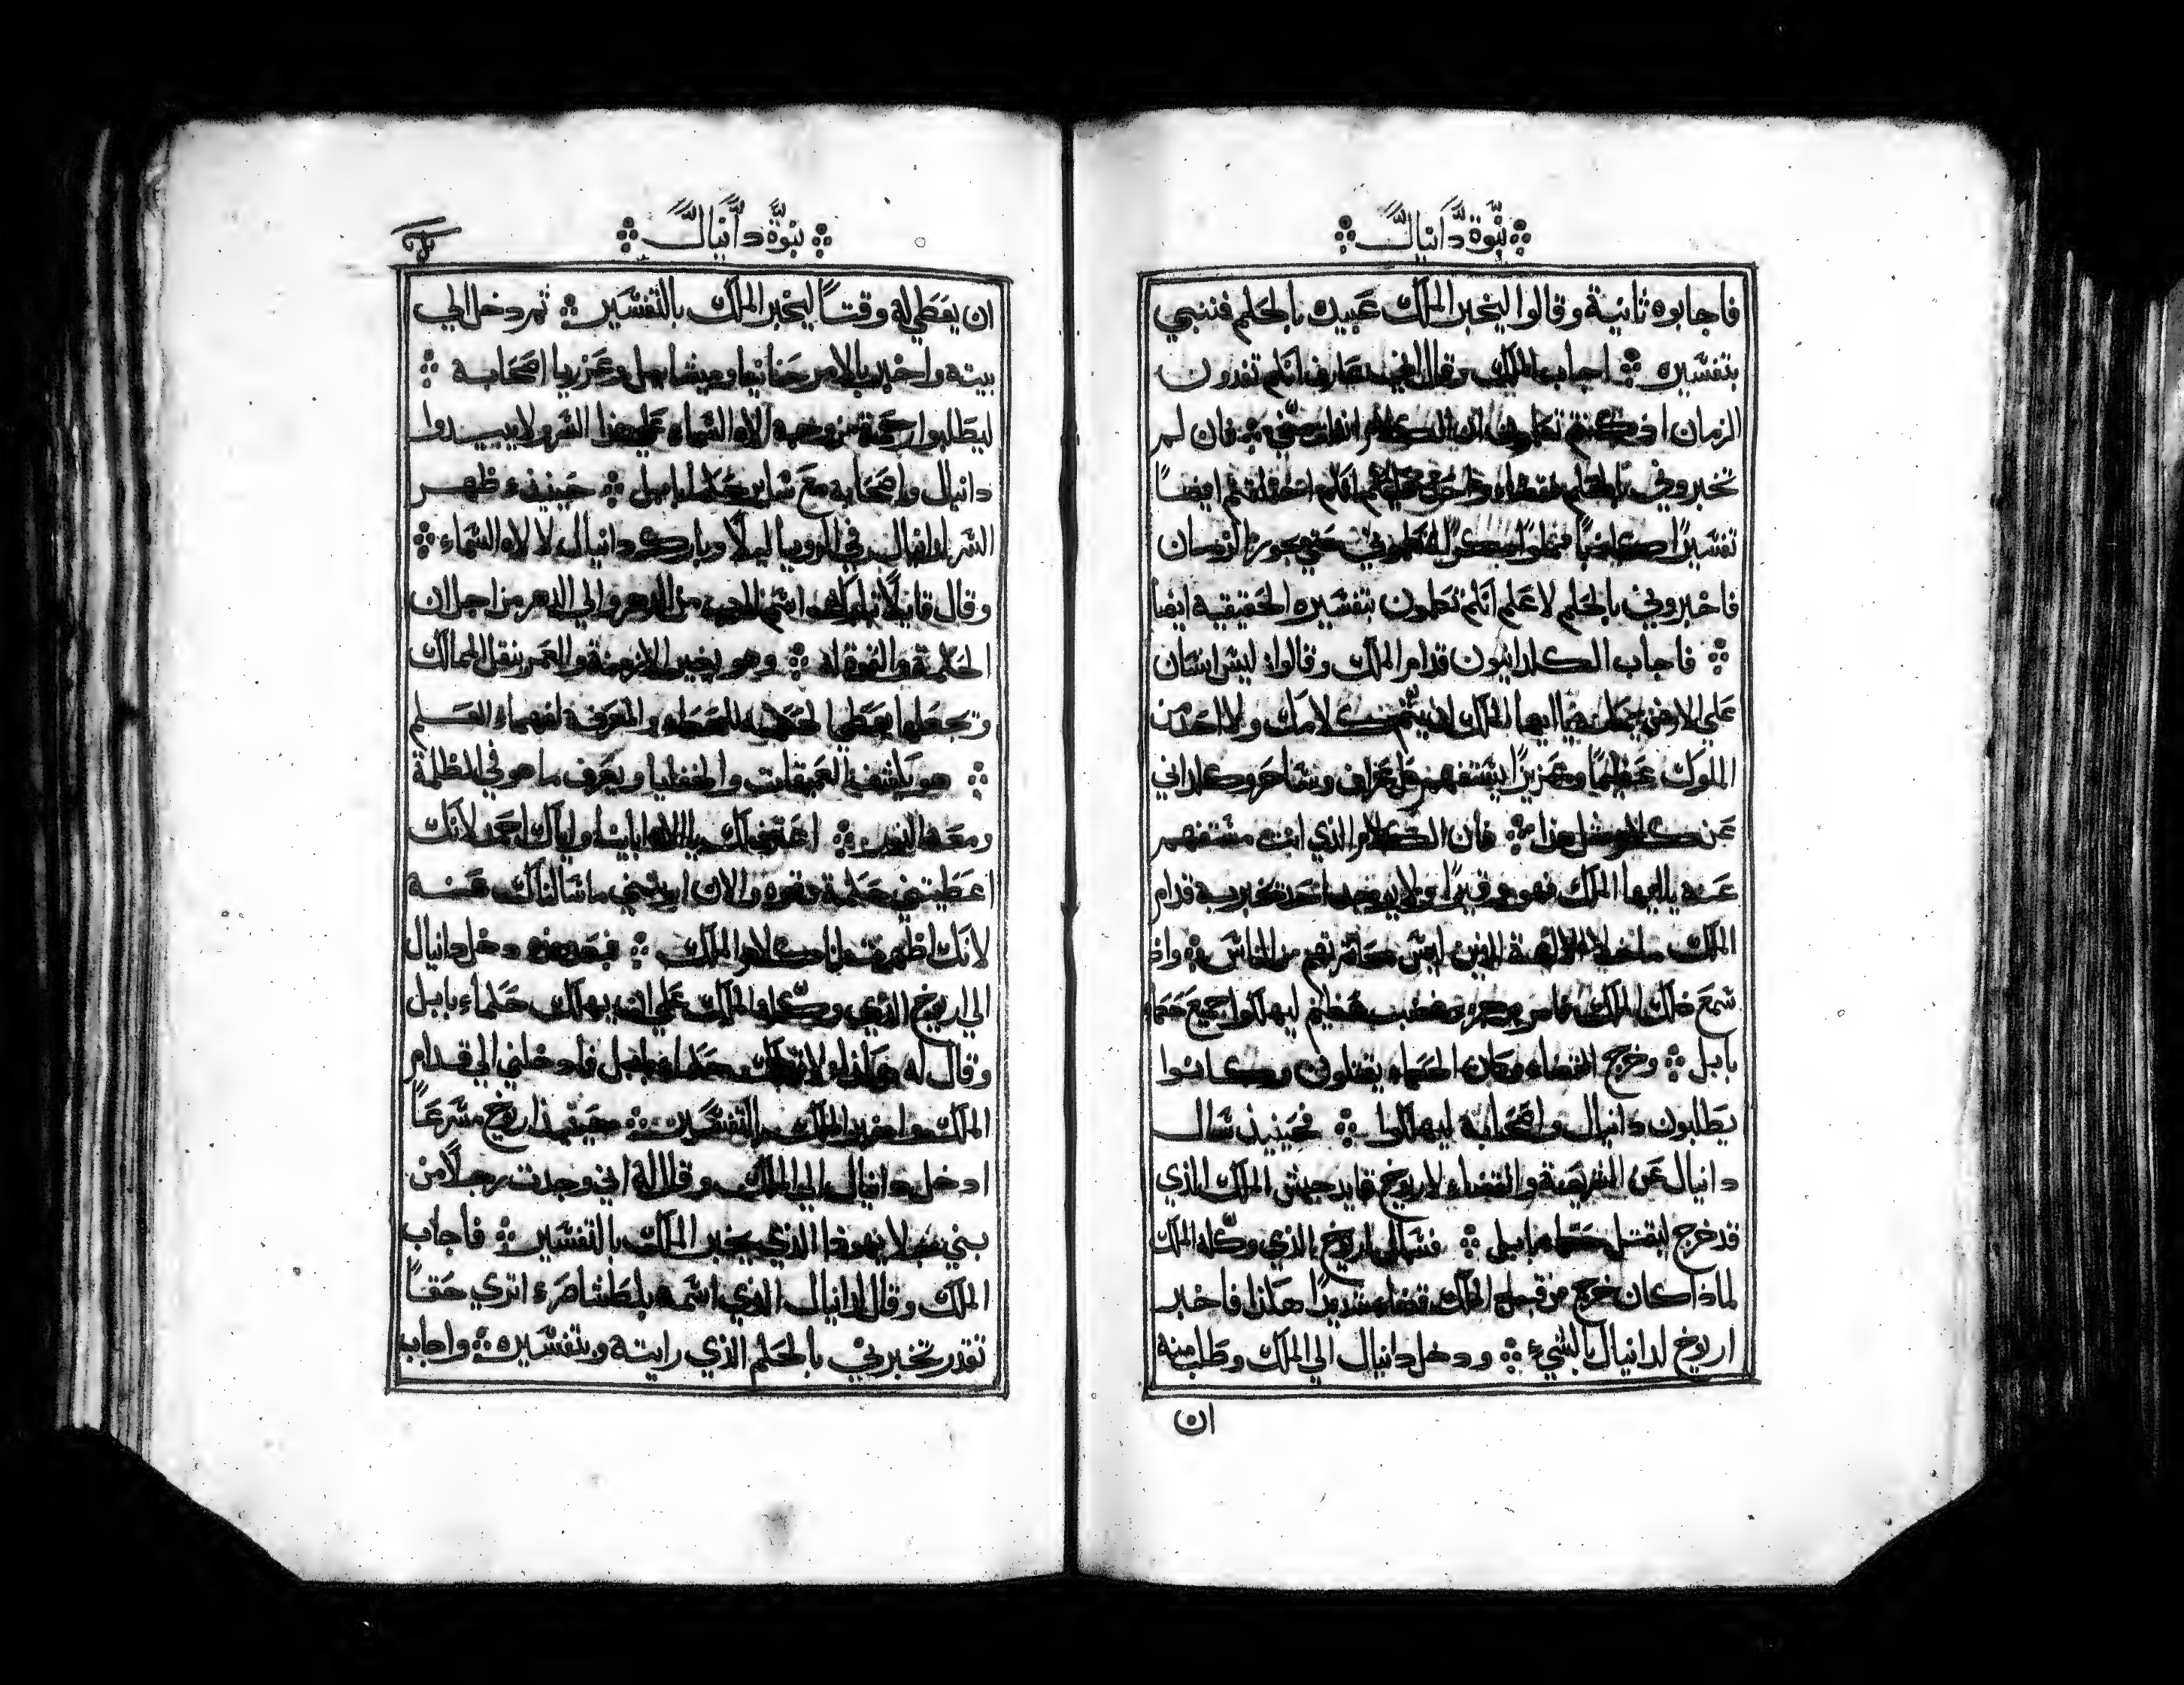 نبوة دانيال
فاجابوه ثانية وقالوا ليخبر الملك عبيده بالحلم فننبي
بتفسيره اجاب الملك وقال اني عارف انكم تفدون
الزمان اذ كنتم تعلمون ان الكلام فان لم
تخبروني بالحلم فقضاء واحد انكم ايضا
تفسيرا كاذبا حتي يجوز الزمان
فاخبروني بالحلم لاعلم انكم تعلمون بتفسيره الحقيقية ايضا
فاجاب الكلدانيون قدام الملك وقالوا ليس انسان
علي الارض ايها الملك ان يتمم كلامك ولا احد من
الملوك عظيما وعزيزا يستفهم كل عراف وساحر وكلداني
عن كلام مثل هذا فان الكلام الذي انت مستفهم
عنه يا ايها الملك فهو ولا يوجد احد يخبر به قدام
الملك ما خلا الالهة الذين ليس معاشرتهم من الناس واذ
سمع ذلك الملك فامر عظيم ليهلكوا جميع حكما
بابل وخرج القضاء وكان الحكماء يقتلون وكانوا
يطلبون دانيال واصحابه ليهلكوا فحينيذ سال
دانيال عن الشريعة والقضاء لاريوخ قايد جيش الملك الذي
قد خرج ليقتل حكماء بابل فسال اريوخ الذي وكله الملك
لماذا كان خرج من قبل الملك قضاء شديدا هكذا فاخبر
اريوخ لدانيال بالشيء ودخل دانيال الي الملك وطلب منه
ان
نبوة دانيال
ان يعطي له وقتا ليخبر الملك بالتفسير ثم دخل الي
بيته واخبر بالامر حنانيا وميشاييل وعزريا اصحابه
ليطلبوا رحمة من وجه الاه السماء علي هذا السر ولا يبيدوا
دانيال واصحابه مع ساير حكماء بابل حينيذ ظهر
السر لدانيال في الرويا ليلا وبارك دانيال لالاه السماء
وقال قايلا اسم الرب من الدهر والي الدهر من اجل ان
الحكمة والقوة له وهو يغير الازمنة والعمر ينقل الممالك
وتجعلها يعطي الحكمة للحكماء والمعرفة لفهماء العلم
هو يكشف العميقات والخفايا ويعرف ما هو في الظلمة
ومعه النور اعترف لك يا الاه اباينا واياك احمد لانك
اعطيتني حكمة وقوة والان اريتني ما سالناك عنه
لانك اظهرت لنا كلام الملك فبعد هذه دخل دانيال
الي اريوخ الذي وكله الملك علي ان يهلك حكماء بابل
وقال له هكذا لا تهلك حكماء بابل فادخلني الي قدام
الملك واخبر الملك بالتفسير حينيذ اريوخ مسرعا
ادخل دانيال الي الملك وقال له اني وجدت رجلا من
بني جلا يهوذا الذي يخبر الملك بالتفسير فاجاب
الملك وقال لدانيال الذي اسمه بلطشاصر اتري حقا
تقدر تخبرني بالحلم الذي رايته وبتفسيره واجاب